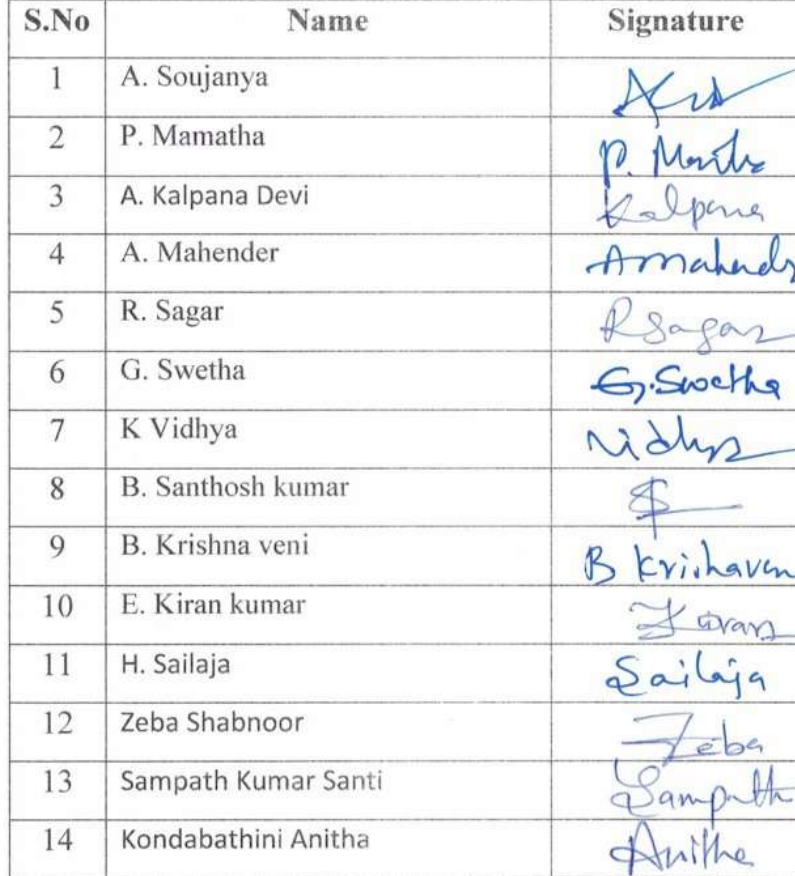 S.No Name Signature
1 A. Soujanya
2 P. Mamatha P.
3 A. Kalpana Devi Kalpana
4 A. Mahender
5 R. Sagar R Sagar
6 G. Swetha G. Swetha
7 K Vidhya Vidhya
8 B. Santhosh kumar
9 B. Krishna veni B
10 E. Kiran kumar Kiran
11 H. Sailaja Sailaja
12 Zeba Shabnoor Zeba
13 Sampath Kumar Santi Sampath
14 Kondabathini Anitha Anitha